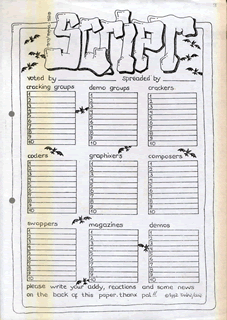 SCRIPT
voted by spreaded by
cracking groups demo groups crackers
1 1 1
2 2 2
3 3 3
4 4 4
5 5 5
6 6 6
7 7 7
8 8 8
9 9 9
10 10 10
coders graphixers composers
1 1 1
2 2 2
3 3 3
4 4 4
5 5 5
6 6 6
7 7 7
8 8 8
9 9 9
10 10 10
swappers magazines demos
1 1 1
2 2 2
3 3 3
4 4 4
5 5 5
6 6 6
7 7 7
8 8 8
9 9 9
10 10 10
please write your addy, reactions and some news
on the back of this paper. thanx pal!!